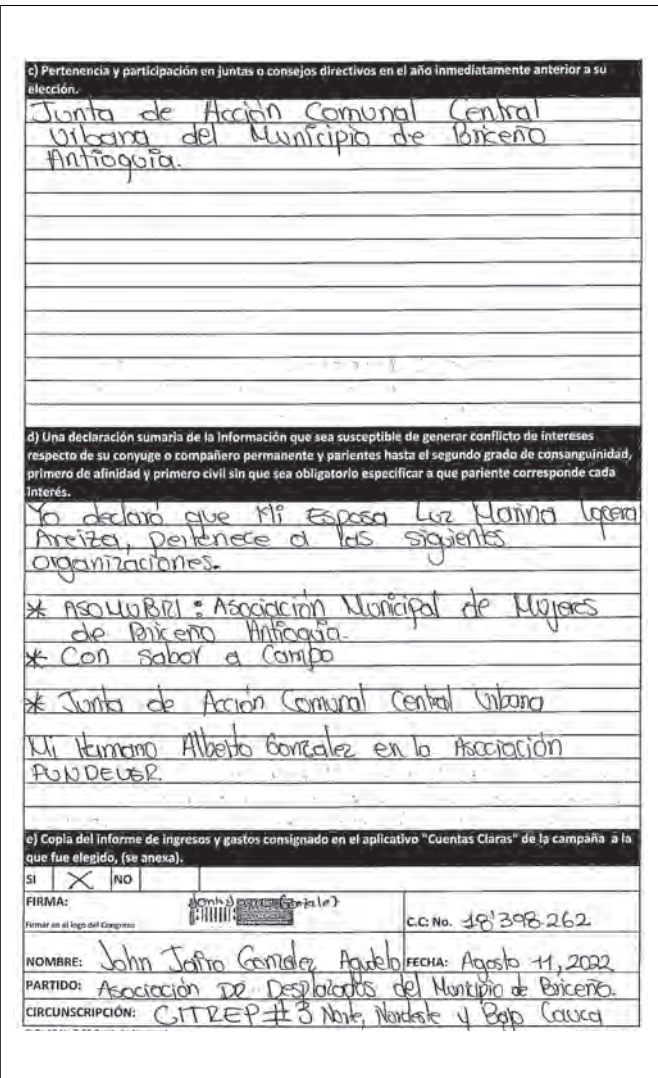 c) Pertenencia y participación en juntas o consejos directivos en el año inmediatamente anterior a su
elección.
Junta de Acción Comunal Central
Urbana del Municipio de Briceño
Antioquia.
d) Una declaración sumaria de la información que sea susceptible de generar conflicto de intereses
respecto de su conyuge o compañero permanente y parientes hasta el segundo grado de consanguinidad,
primero de afinidad y primero civil sin que sea obligatorio especificar a que pariente corresponde cada
interés.
Yo declaró que Mi Esposa Luz Marina Lopera
Areiza, pertenece a las siguients
organizaciones.
* ASOMUBRI: Asociación Municipal de Mujeres
de Briceño Antioquia.
* Con Sabor a Campo
* Junta de Acción Comunal Central Urbana
Mi Hermano Alberto Gonzalez en la Asociación
e) Copia del informe de ingresos y gastos consignado en el aplicativo "Cuentas Claras" de la campaña a la
que fue elegido, (se anexa).
SI X NO
FIRMA:
Firmar en el logo del Congreso
C.C: No. 18'398.262
NOMBRE: John Jairo Gonzalez Agudelo FECHA: Agosto 11, 2022
PARTIDO: Asociación De Desplazados del Municipio de Briceño.
CIRCUNSCRIPCIÓN: CITREP # 3 Norte, Nordeste y Bajo Cauca